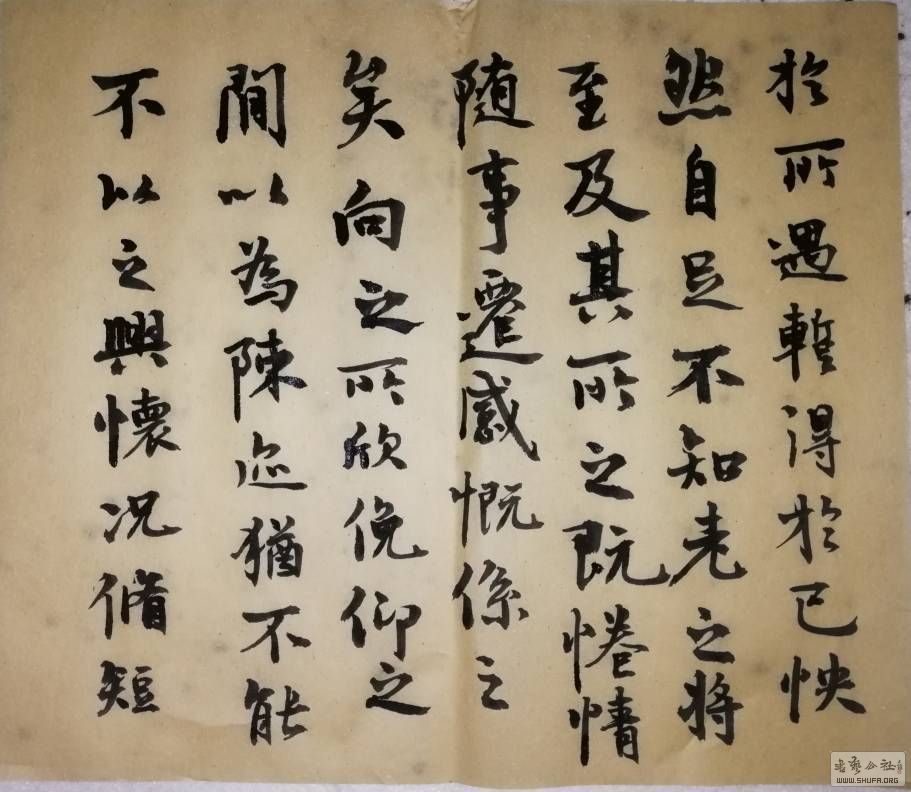 於所遇暫得於己怏
然自足不知老之將
至及其所之既惓情
随事遷感慨係之
矣向之所欣俛仰之
間以為陳迹猶不能
不以之興懷况脩短
书艺公社
WWW.SHUFA.ORG